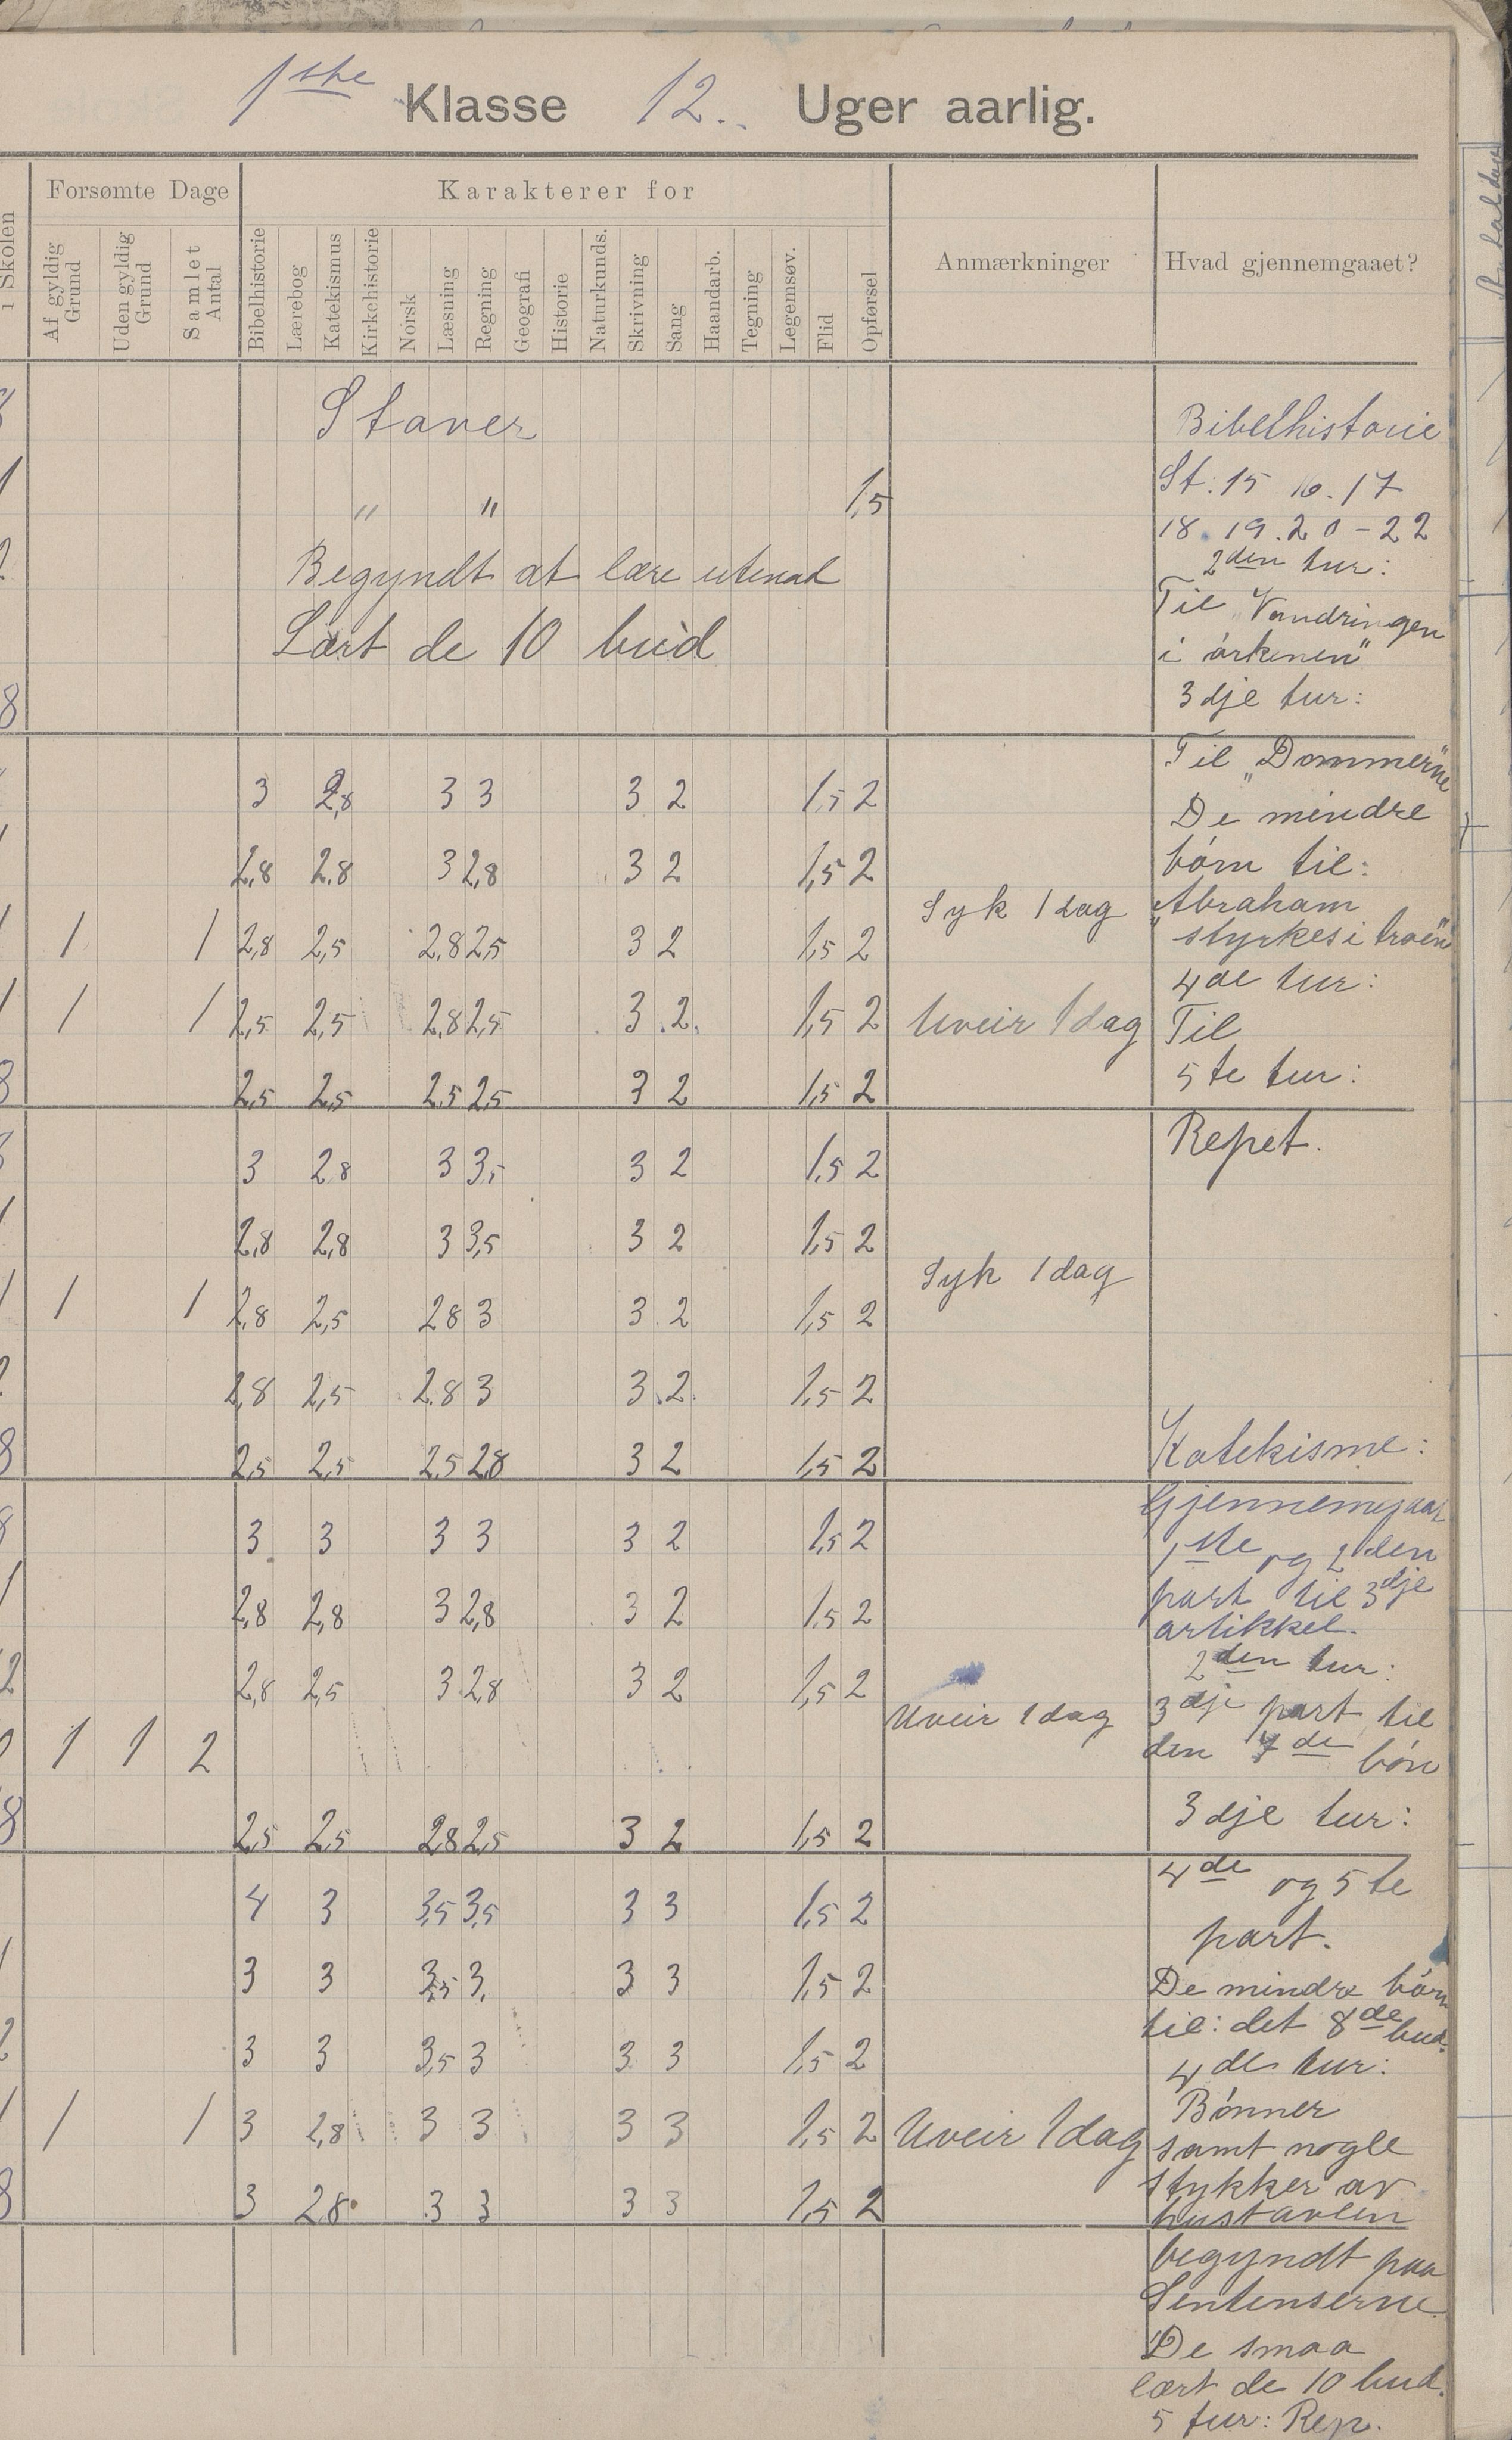 1ste Klasse 12. Uger aarlig.
i Skolen
Forsømte Dage
Karakterer for
Af gyldig Grund
Uden gyldig Grund
Samlet Antal
Bibelhistorie
Lærebog
Katekismus
Kirkehistorie
Norsk
Læsning
Regning
Geografi
Historie
Naturkunds.
Skrivning
Sang
Haandarb.
Tegning
Legemsøv.
Flid
Opførsel
Anmærkninger
Hvad gjennemgaaet?
8 Staver
1 " " 1,5
2 Begyndt at lære utenad
Lært de 10 bud
8
3 2,8 3 3 3 2 1,5 2
1 2,8 2,8 3 2,8 3 2 1,5 2
1 1 1 2,8 2,5 2,8 2,5 3 2 1,5 2 Syk 1 dag
1 1 1 2,5 2,5 2,8 2,5 3 2 1,5 2 Uveir 1 dag
8 2,5 2,5 2,5 2,5 3 2 1,5 2
8 3 2,8 3 3,5 3 2 1,5 2
1 2,8 2,8 3 3,5 3 2 1,5 2
1 1 1 2,8 2,5 2,8 3 3 2 1,5 2 Syk 1 dag
2 2,8 2,5 2,8 3 3 2 1,5 2
8 2,5 2,5 2,5 2,8 3 2 1,5 2
8 3 3 3 3 3 2 1,5 2
1 2,8 2,8 3 2,8 3 2 1,5 2
2 2,8 2,5 3 2,8 3 2 1,5 2
1 1 2 Uveir 1 dag
8 2,5 2,5 2,8 2,5 3 2 1,5 2
4 3 3,5 3,5 3 3 1,5 2
1 3 3 3,5 3, 3 3 1,5 2
2 3 3 3,5 3 3 3 1,5 2
1 1 1 3 2,8 3 3 3 3 1,5 2 Uveir 1 dag
8 3 2,8 3 3 3 3 1,5 2
Bibelhistorie
St. 15 16. 17
18. 19. 20 - 22
2den tur:
Til „Vandringen
i ørkenen"
3dje tur:
Til „Dommerne"
De mindre
børn til:
Abraham
styrkes i troen"
4de tur:
Til
5te tur:
Repet.
Katekisme:
Gjennemgaat
1ste og 2den
part til 3dje
artikkel.
2den tur:
3dje part til
den 7de bøn
3dje tur:
4de og 5te
part.
De mindre børn
til: det 8de bud.
4de tur:
Bønner
samt nogle
stykker av
hustavlen
begyndt paa
Sentenserne
De smaa
lært de 10 bud.
5 tur: Rep.